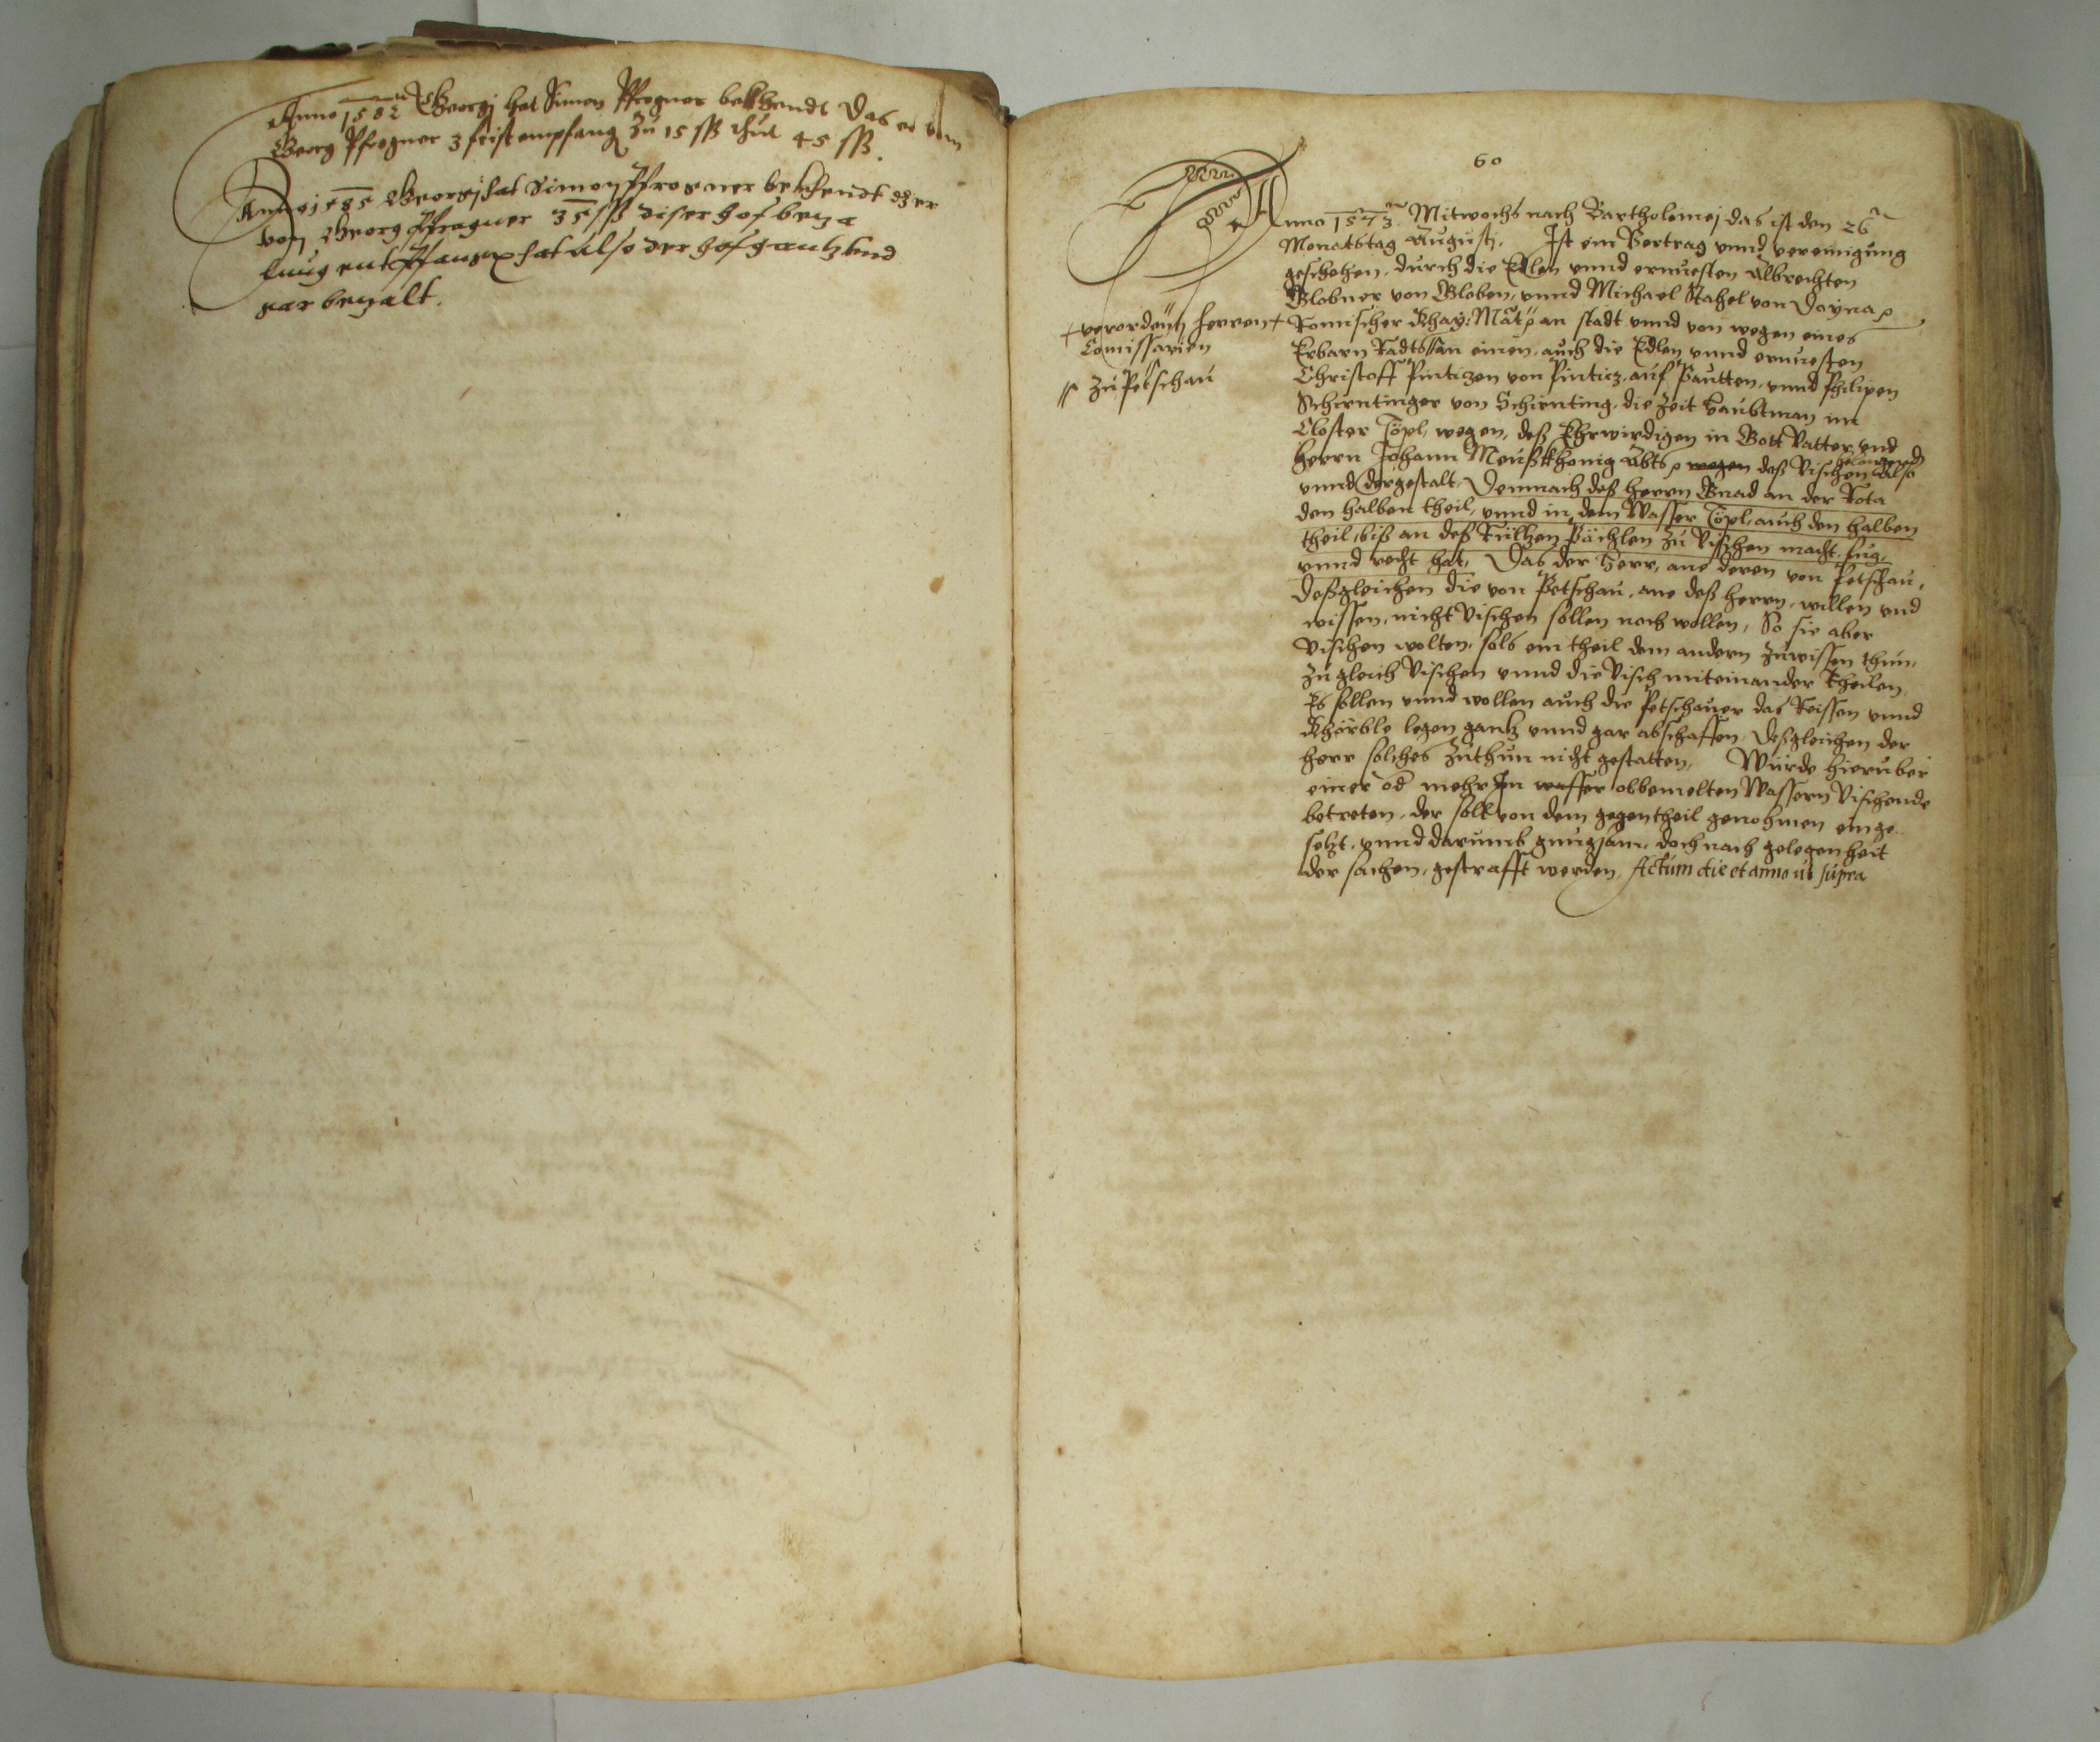 Anno 1582 Georgj hat Simon Pfrogner bekhendt das er von
Georg Pfrogner 3 frist empfang zu 15 ß thut 45 ß.
Anno 1585 Georgj hat Simon Pfrogner bekhendt dz er
von Georg Pfrogner 35 ß diser hof beza
lung entpfangen hat also der hof gantz vnd
gar bezalt.
60
Anno 1573 Mitwochs nach Bartholomej das ist den 26
Monatstag Augustj. Ist ein Vertrag vnnd vereinigung
geschehen, durch die Edlen vnnd ernuesten Albrechten
Globner von Globen, vnnd Michael Stahel von Doyna
+ verordenth herren +
Comissarien
Romischer Khay: Mat: an stadt vnnd von wegen eines
Erbarn Radts // an einen, auch die Edlen vnnd ernuesten
// zu Petschau
Christoff Pinticzen von Pinticz, auf Pautten, vnnd Philipen
Schirntinger von Schirnting, die Zeit Haubtman im
Closter Töpl, wegen, deß Ehrwirdigen in Gott Vatter vnd
herrn Johann Meußkhonig Abts wegen deß Vischen belangend also
vnnd dergestalt, Demnach deß herrn Gnad an der Rota
den halben theil, vnnd in dem Wasser Töpl, auch den halben
theil, biß an deß Pächlen zu Vischen macht, fug,
vnnd recht hat, Das der Herr, ane deren von Petschau,
Deßgleichen die von Petschau, ane deß herrn, willen vnd
wissen, nicht Vischen sollen noch wollen, So sie aber
Vischen wolten, sols ein theil dem andern zuwissen thun,
zu gleich Vischen vnnd die Visch miteinander theilen,
Es sollen vnnd wollen auch die Petschauer das Reissen vnnd
Khörble legen gantz vnnd gar abschaffen, deßgleichen der
herr solches zuthun nicht gestatten, Würde hierüber
einer od mehr Im wasser obbemelten Wassern Vischende
betreten, der soll von dem gegentheil genohmen einge
setzt, vnnd darumb gnugsam, doch nach gelegenheit
der sachen, gestrafft werden, Actum die et anno ut supra